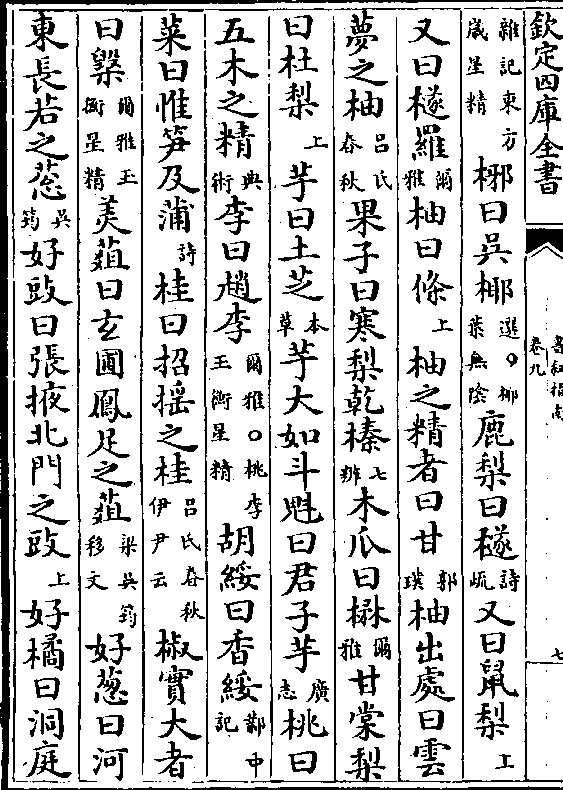 欽定四庫全書
卷九
七
雜記東方歲星精 梛曰吳椰 選○椰葉無陰 鹿梨曰檖 詩疏 又曰鼠梨 上
又曰檖羅 爾雅 柚曰條 上 柚之精者曰甘 郭璞 柚出處曰雲
夢之柚 呂氏春秋 果子曰寒梨乾榛 七辨 木瓜曰楙 爾雅 甘棠梨
曰杜梨 上 芋曰土芝 本草 芋大如斗魁曰君子芋 廣志 桃曰
五木之精 典術 李曰趙李 爾雅○桃李玉衡星精 胡綏曰香綏 鄴中記
菜曰惟笋及蒲 詩 桂曰招搖之桂 呂氏春秋伊尹云 椒實大者
曰檓 爾雅玉衡星精 美菹曰玄圃鳳足之菹 梁吳筠移文 好葱曰河
東長若之葱 吳筠 好豉曰張掖北門之豉 上 好橘曰洞庭